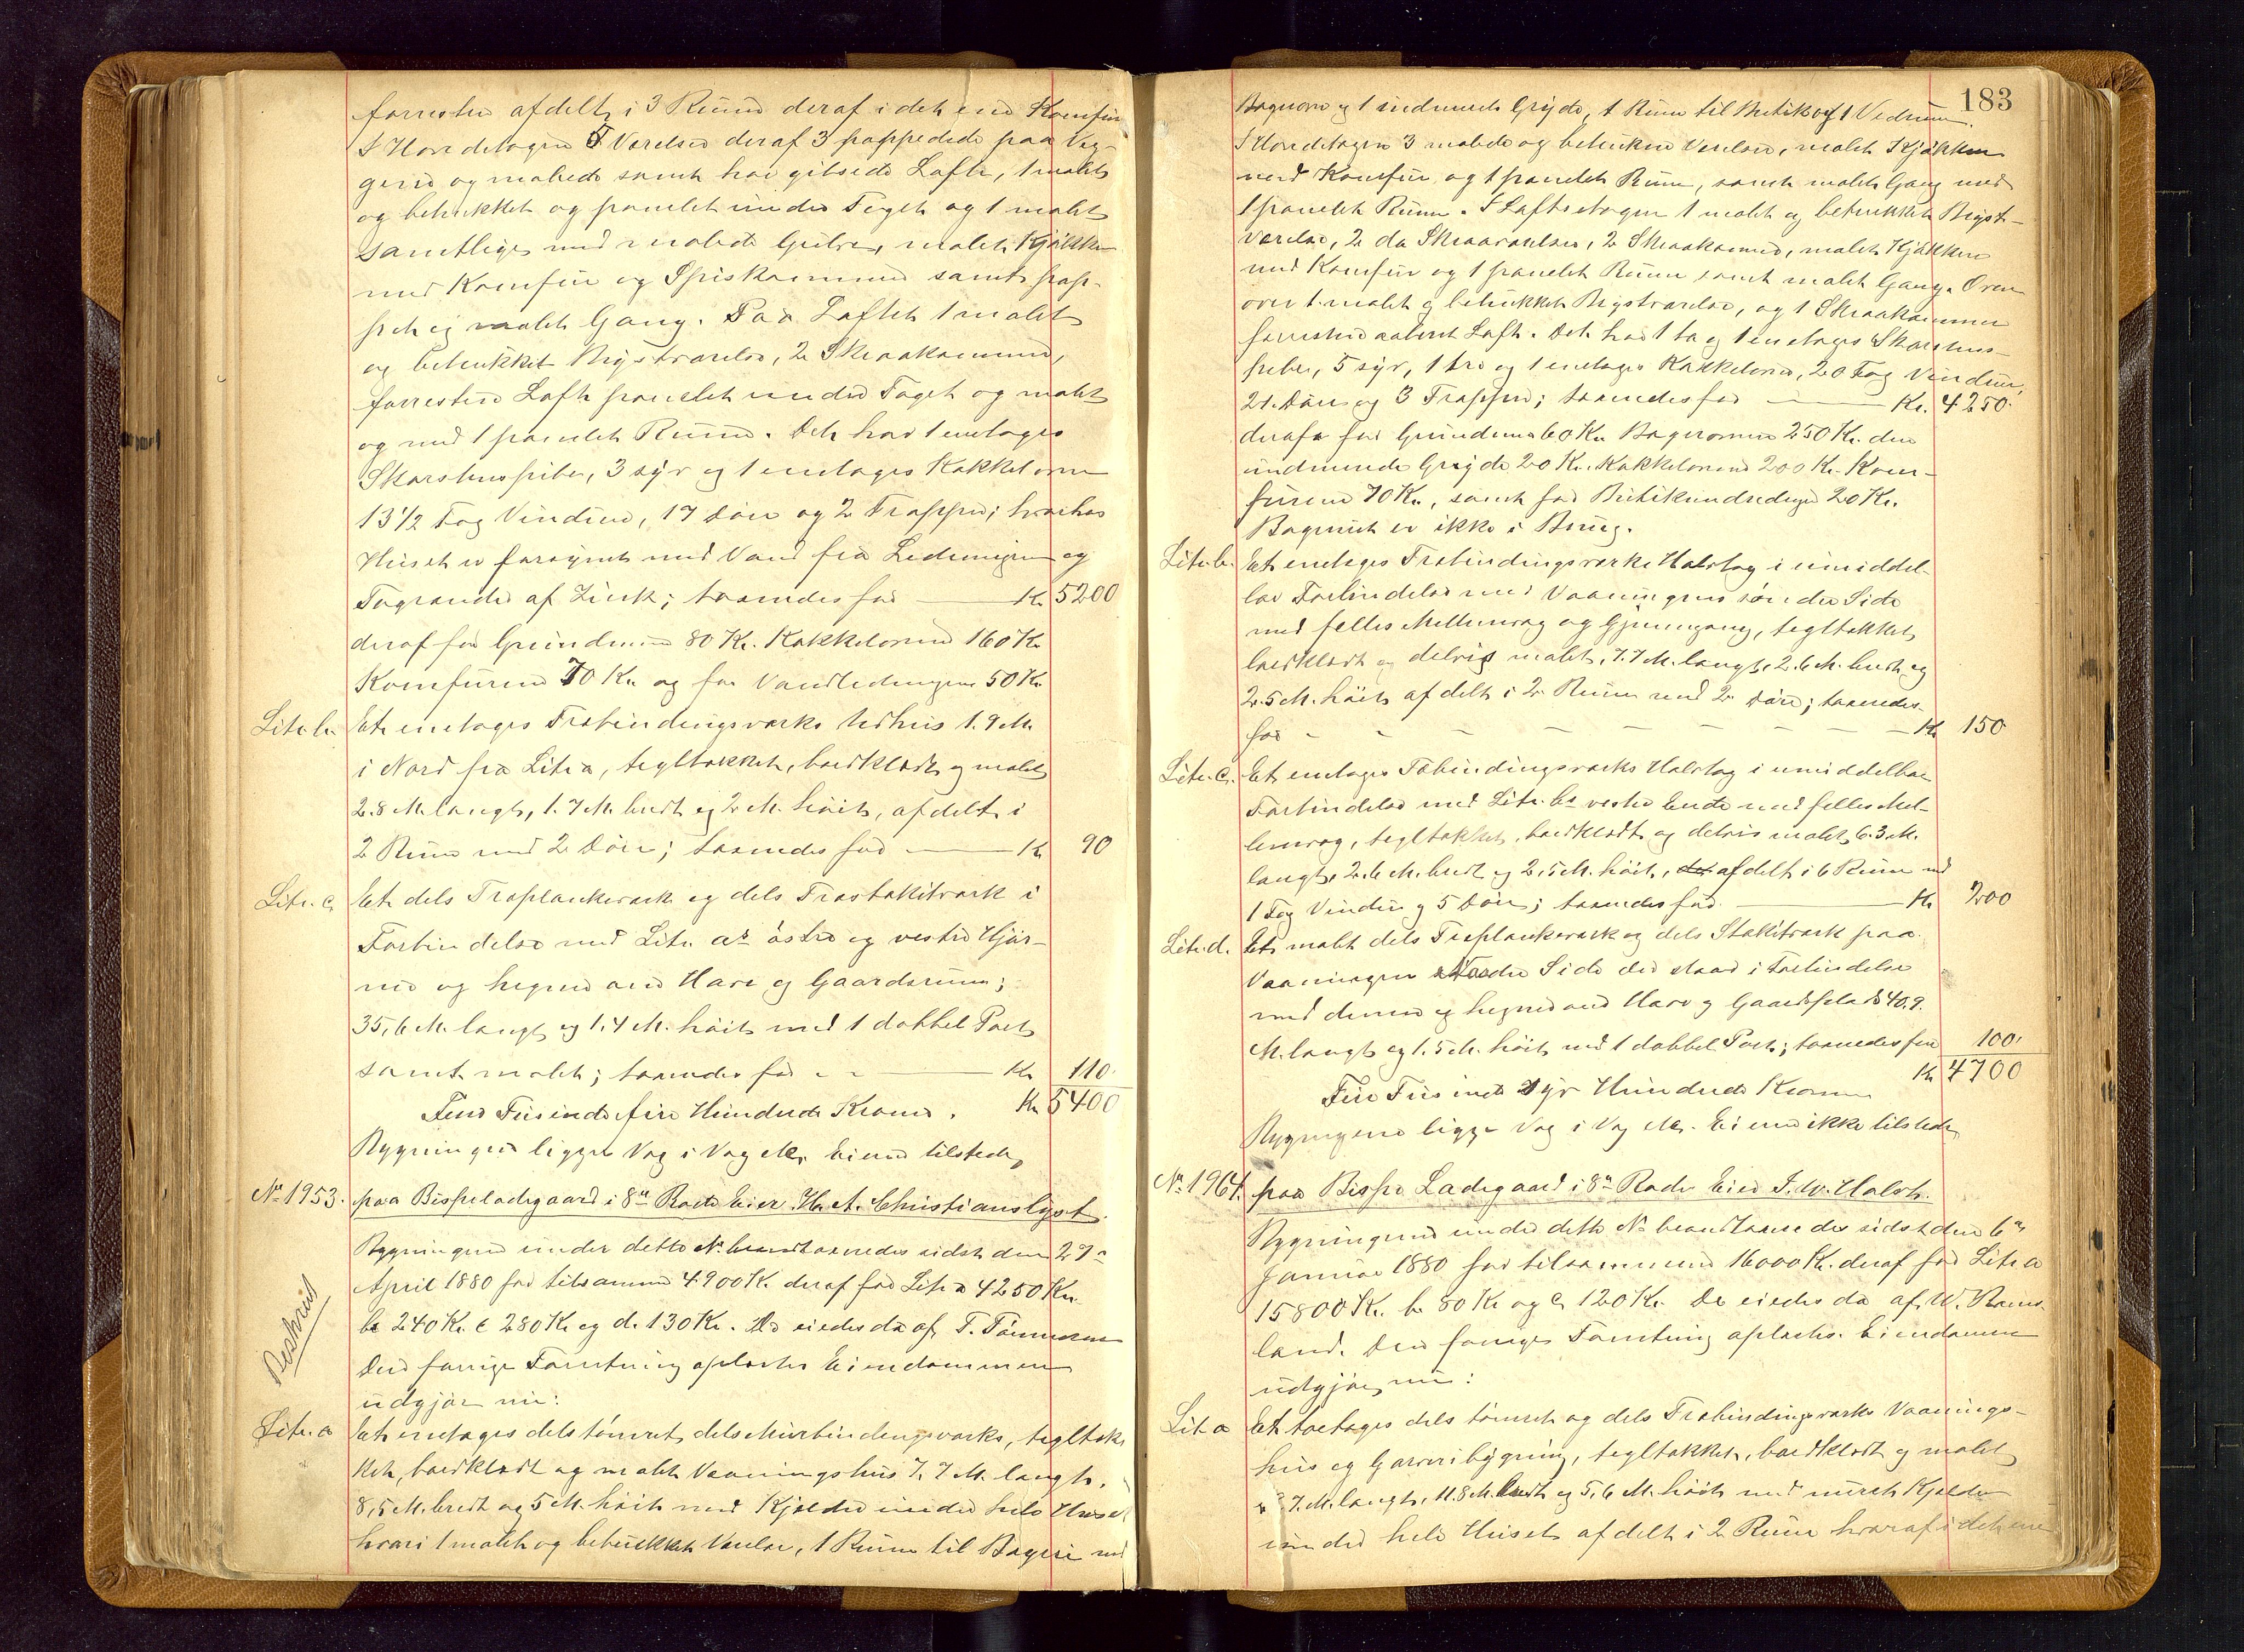 forresten afdelt i 3 Rum deraf i det ene Komfur
I Hovedetagen 5 Værelser deraf 3 pappede paa Væg-
gene og malede samt har gibsede Loft, 1 malet
og betrukket og panelet under Taget og 1 malet
samtlige med malede Gulve, malet Kjøkken
med Komfur og Spiskammer samt pap-
pet og malet Gang. Paa Loftet 1 malet
og betrukket Brystværelse, 2 Skraakammer,
forresten Loft panelet under Taget og malet
og med 1 panelet Rum. Det har 1 enetages
Skorstenspibe, 3 syv og 1 enetages Kakkelovn
13 1/2 Fag Vinduer, 17 Døre og 2 Trapper;
Huset er forsynet med Vand fra Ledningen og
Tagrender af Zink; taxeredes for — Kr. 5200
deraf for Grundmuren 80 Kr. Kakkelovnene 160 Kr.
Komfuren 70 Kr. og for Vandledningen 50 Kr.
Litr. b. Et enetages Træbindingsværks Udhus 1.9 M.
i Nord fra Litr. a, tegltækket, bordklædt og malet
2.8 M. langt, 1.7 M. bredt og 2 M. høit, afdelt i
2 Rum med 2 Døre; taxeredes for — Kr. 90
Litr. c. Et dels Træplankeværk og dels Træstakitværk i
Forbindelse med Litr. a's østre og vestre Hjør-
ne og hegner om Have og Gaardsrum;
35,6 M. langt og 1,4 M. høit med 1 dobbel Port
samt malet; taxeredes for — Kr. 110.
Kr. 5400
Fem Tusinde fire Hundrede Kroner.
Bygningen ligger Vag i Vag Eieren tilstede,
No 1953. paa Bispeladegaard i 8de Rode Eier H. A. Christianslyst.
Beskrevet
Bygningerne under dette No. brandtaxeredes sidst den 27de
April 1880 for tilsammen 4900 Kr. deraf for Litr. a 4250 Kr.
b 240 Kr. c 280 Kr. og d. 130 Kr. De eiedes da af T. Tønnesen
Den forrige Forretning oplæstes Eiendommen
udgjør nu:
Litr. a Et enetages dels tømret, dels Murbindingsværks, tegltæk-
ket, bordklædt og malet Vaaningshus 7.7 M. langt,
8,5 M. bredt og 5 M. høit med Kjælder under hele Huset
hvori 1 malet og betrukket Værelse, 1 Rum til Bageri med
183
Bagerovn og 1 indmuret Gryde, 1 Rum til Butik og 1 Vedrum.
I Hovedetagen 3 malede og betrukne Værelser, malet Kjøkken
med Komfur og 1 panelet Rum, samt malet Gang med
1 panelet Rum. I Loftsetagen 1 malet og betrukket Bryst-
værelse, 2 do Skraaværelser, 2 Skraakammer, malet Kjøkken
med Komfur og 1 panelet Rum samt malet Gang. Oven
over 1 malet og betrukket Brystværelse, og 1 Skraakammer
forresten aabent Loft. Det har 1 to og 1 enetages Skorstens-
piber, 5 syv, 1 tre og 1 enetages Kakkelovn, 20 Fag Vinduer,
21 Døre og 3 Trapper; taxeredes for — Kr. 4250.
deraf for Grundmur 60 Kr. Bagerovnen 250 Kr. den
indmurede Gryde 20 Kr. Kakkelovnene 200 Kr. Kom-
furene 70 Kr., samt for Butikindredningen 20 Kr.
Bageriet er ikke i Brug.
Litr. b. Et enetages Træbindingsværks Halvtag i umiddel-
bar Forbindelse med Vaaningens søndre Side
med fælles Mellemvæg og Gjennemgang, tegltækket,
bordklædt og delvis malet, 7.7 M. langt, 2.6 M. bredt og
2.5 M. høit, afdelt i 2 Rum med 2 Døre; taxeredes
for — Kr. 150
Litr. c. Et enetages Træbindingsværks Halvtag i umiddelbar
Forbindelse med Litr. b's vestre Ende med fælles Mel-
lemvæg, tegltækket, bordklædt og delvis malet, 6.3 M.
langt, 2.6 M. bredt og 2,5 M. høit, afdelt i 6 Rum med
1 Fag Vindu og 5 Døre; taxeredes for — Kr. 200
Litr. d. Et malet dels Træplankeværk og dels Stakitværk paa
Vaaningens Side der staar i Forbindelse
med denne og hegner om Have og Gaardsplads 40,9.
M. langt og 1.5 M. høit med 1 dobbel Port; taxeredes for 100.
Kr. 4700
Fire Tusinde syv Hundrede Kroner
Bygningerne ligge Vag i Vag Eieren ikke tilstede
No. 1964. paa Bispe Ladegaard i 8de Rode Eier J. W. Halvt.
Bygningerne under dette No. brandtaxeredes sidst den 6te
Januar 1880 for tilsammen 16000 Kr. deraf for Litr. a
15800 Kr. b. 80 Kr. og c. 120 Kr. De eiedes da af W. Rams-
land. Den forrige Forretning oplæstes. Eiendommen
udgjør nu:
Lit a Et toetages dels tømret og dels Træbindingsværks Vaanings-
hus og Garveribygning, tegltækket, bordklædt og malet
7. M. langt, 11.8 M. bredt og 5,6 M. høit med muret Kjælder
under hele Huset afdelt i 2 Rum hvoraf i det ene